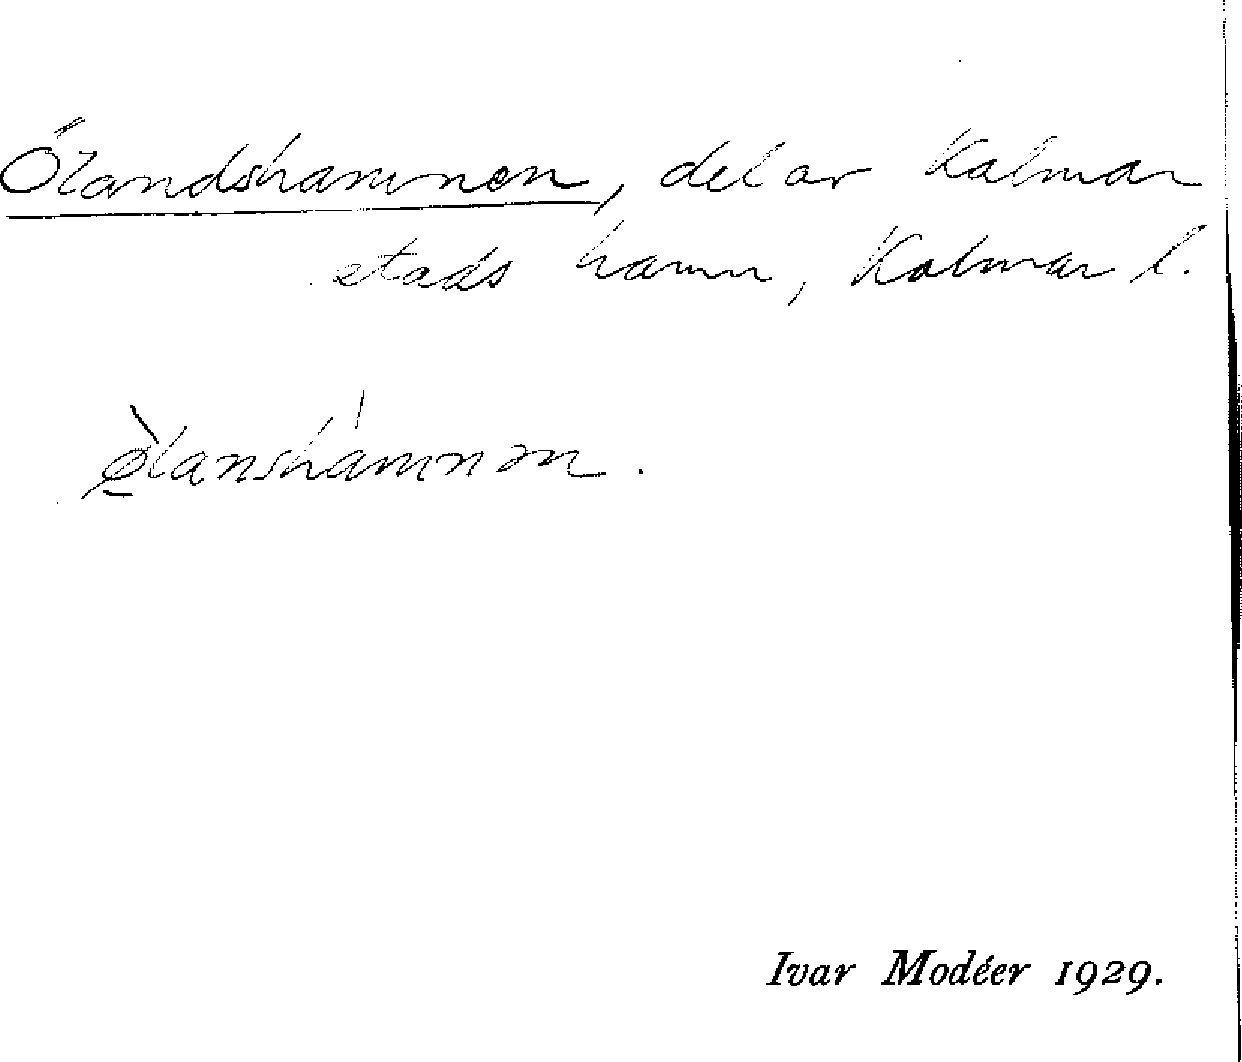 Ölandshamnen, del av Kalmar
stads hamn, Kalmar l.
ø̀lanshámnən.
Ivar Modéer 1929.